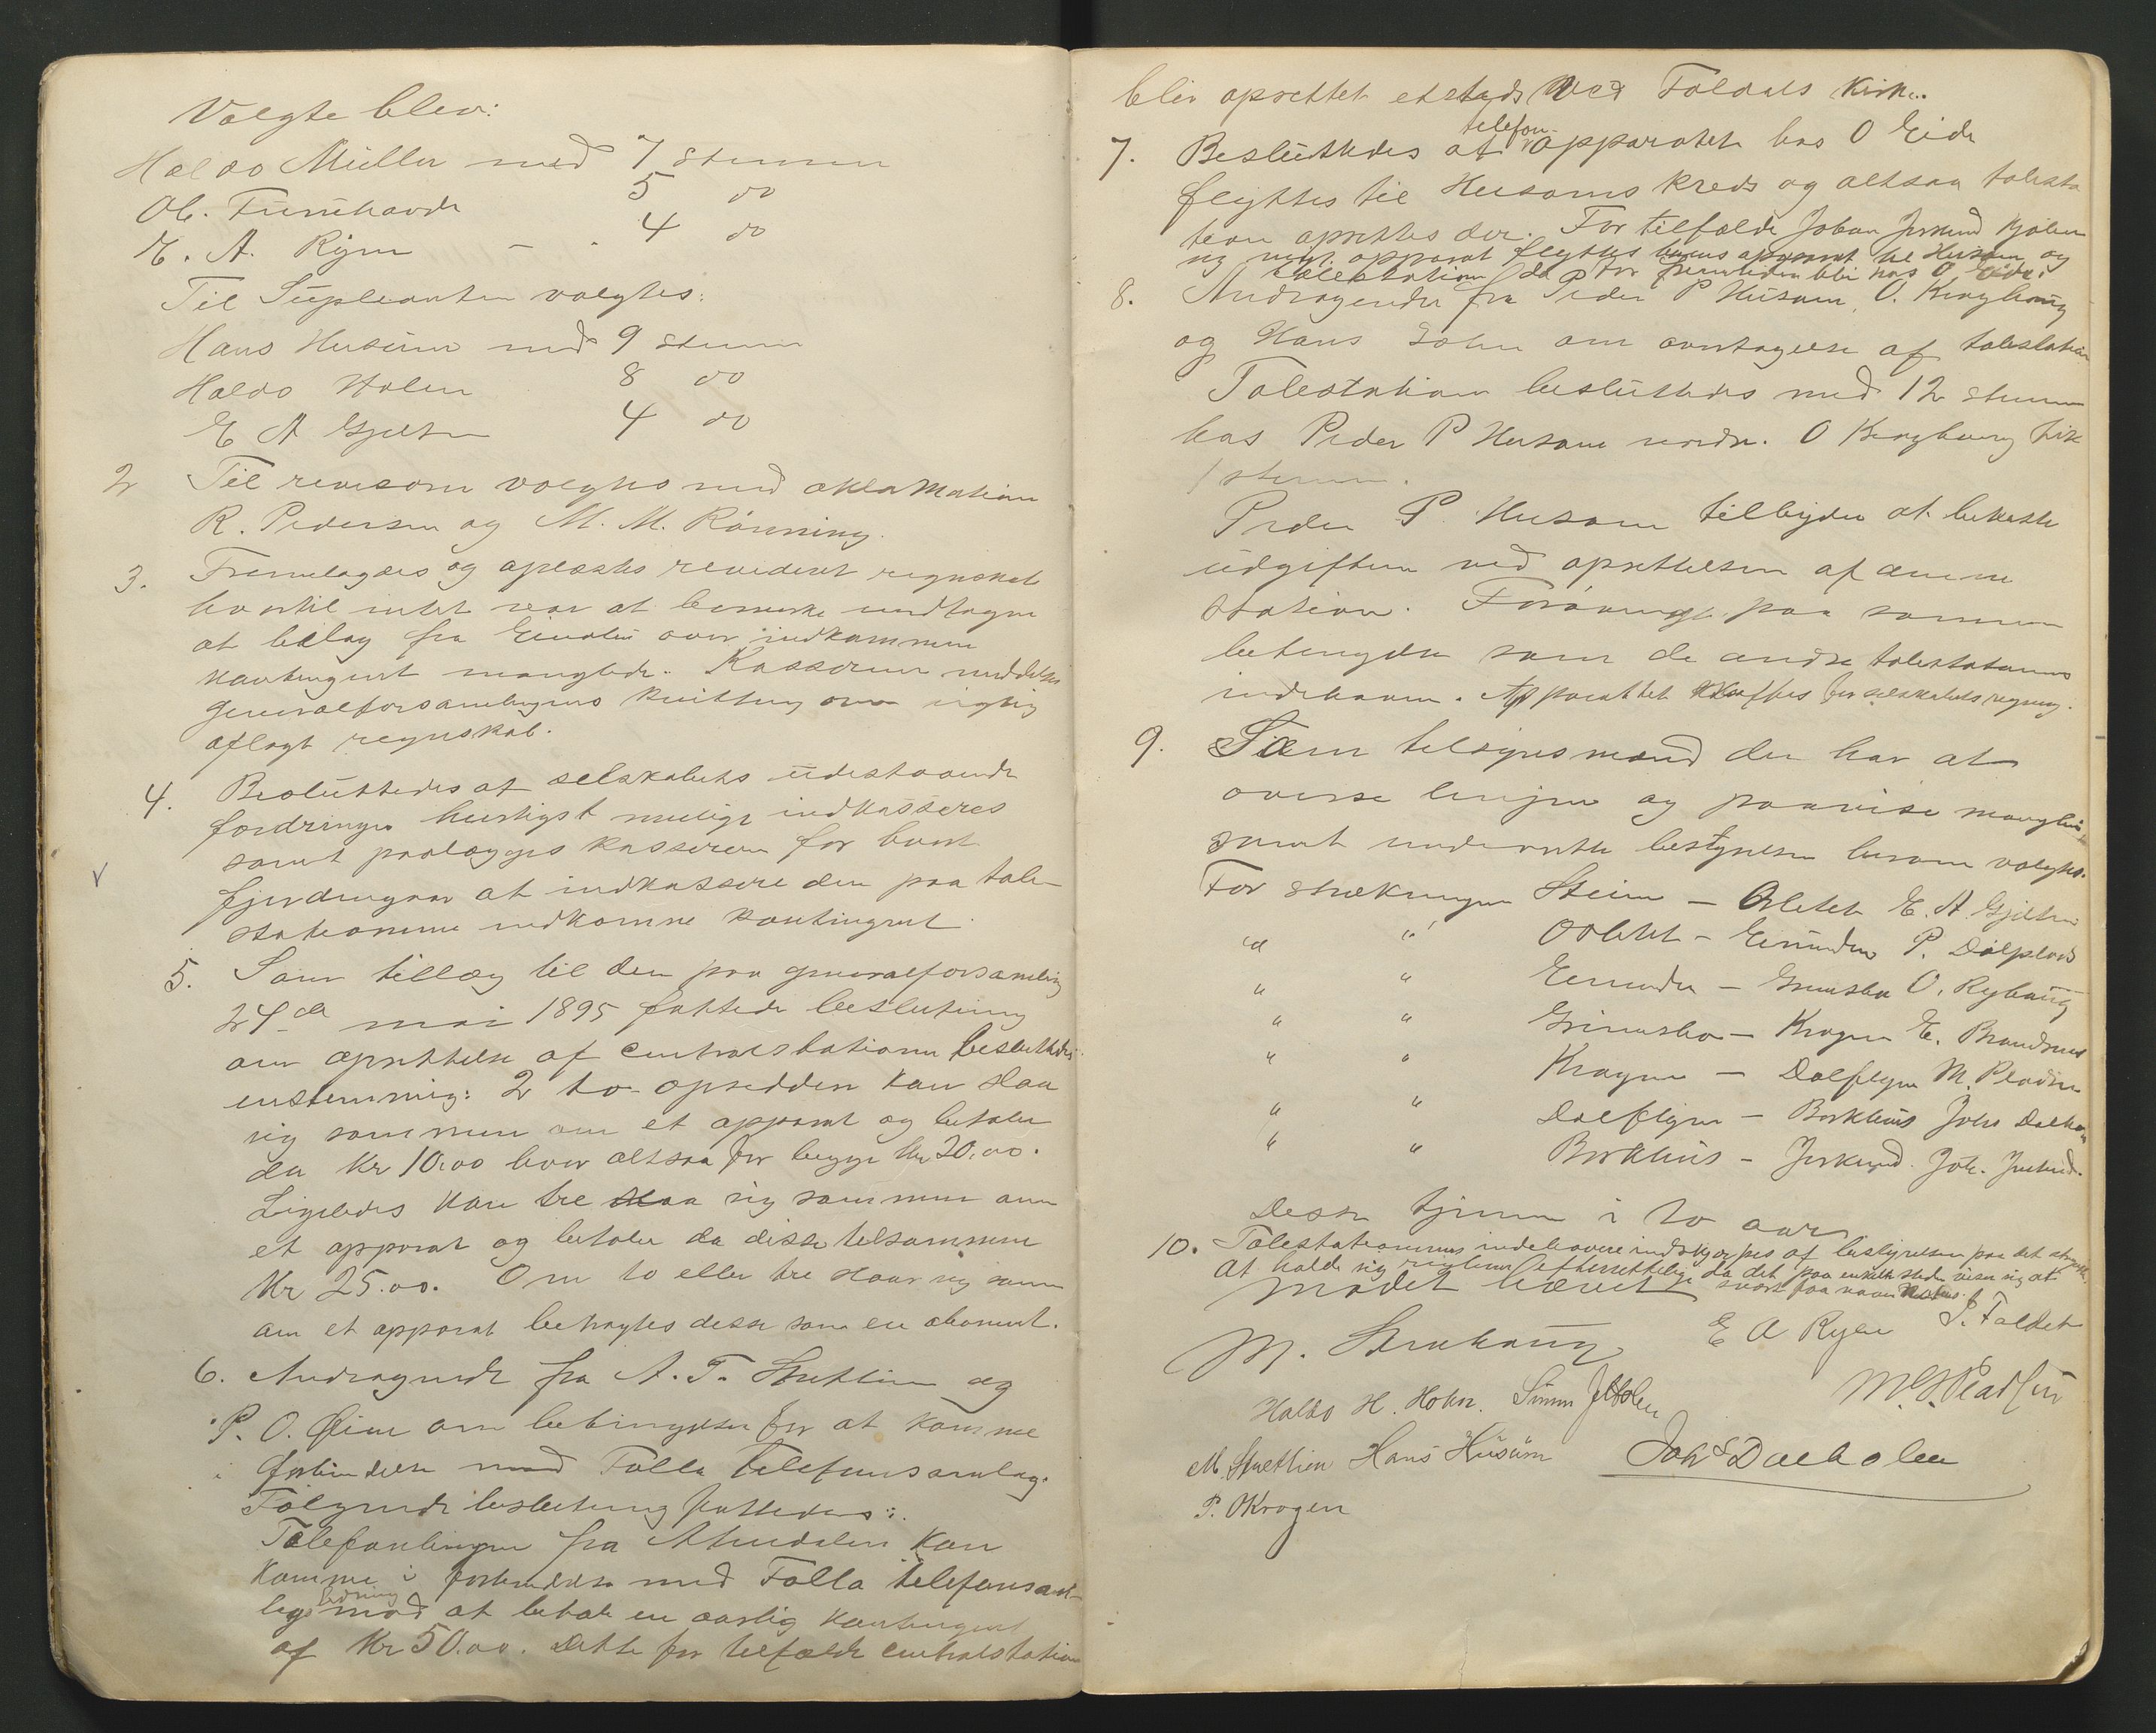 Valgte blev:
Haldo Müller med 7 stemmer
Ol. Furuhovde 5 do
E. A. Ryen - 4 do
Til Supleanter valgtes:
Hans Husum med 9 stemmer
Haldo Holen 8 do
E A Gjelten 4 do
2 Til revisorer valgtes med aklamation
R. Pedersen og M. M. Rönning.
3. Fremlagdes og oplæstes revideret regnskab
hvortil intet var at bemerke undtagen
at belag fra over indkommen
kontingent manglede. Kassereren meddeltes
Generalforsamlingens kvittering over rigtig
aflagt regnskab.
4. Besluttedes at selskabets udestaaende
fordringer hurtigst muligt indkasseres
samt paalægges kassereren for hvert
fjerdingaar at indkassere den paa tale-
stationerne indkomne kontingent.
5. Som tillæg til den paa generalforsamling
24de mai 1895 fattede beslutning
om oprettelse af centralstationer besluttedes
enstemmig: 2 to opsiddere kan slaa
sig sammen om et apparat og betaler
da Kr 10.00 hver altsaa for begge Kr 20.00.
Ligeledes kan tre slaa sig sammen om
et apparat og betaler da disse tilsammen
Kr 25.00. Om to eller tre slaar sig sammen
om et apparat betragtes desse som en abonent.
6. Andragende fra A. T. Streitlien og
P. O. Øien om betingelser for at komme
i forbindelse med Folla Telefonsamlag.
Følgende beslutning fattedes:
Telefonlinjen fra Atnedalen kan
komme i forbindelse med Folla telefonsam-
lags ledning mod at betale en aarlig kontingent
af Kr 50.00. Dette for tilfælde centralstation
blir oprettet etsteds ved Foldals Kirke.
7. Besluttedes at telefon-apparatet hos O Eide
flyttes til Husoms kreds og altsaa talesta
tion oprettes der. For tilfælde Johan Jerkind kjøber
sig nyt apparat flyttes hans apparat til Husom og
talestation da for fremtiden bli hos O Eide.
8. Andragender fra Peder P Husom, O. Kroghaug
og Hans Dalen om overtagelse af talestation
Talestation besluttedes med 12 stemmer
hos Peder P Husom nordre. O Kroghaug fik
1 stemme.
Peder P. Husom tilbyder at bekoste
udgifterne ved oprettelsen af denne
station. Forøvrigt paa samme
betingelser som de andre talestationers
indehavere. Apparattet kjøbes for selskabets regning.
9. Som tilsynsmænd der har at
overse linjen og paavise mangler
samt underrette bestyrelsen herom valgtes.
For strækningen Steien - Odletet E. A. Gjelten
" " Odletet - Einunden P. Dølplads
" " Einunden - Grimsbu O. Ryhaug
" " Grimsbu - Krogen E. Brandsnes
" " Krogen - Dalflyen M. Pladsen
" " Dalflyen - Borkhus Johs Dalholen
" " Borkhus - Jerkind. Joh. Jerkind.
Desse tjener i to aar.
10. Talestationernes indehavere indskjærpes af bestyrelsen paa det
at holde sig reglerne efterrettelige da det paa enkelte steder viser sig at
Mødet hævet
M. Streihaug E A Ryen S. Foldet
Haldo H. Holen. Simen Jelten M. Pladsen
M. Streitlien Hans Husum Joh S Dalholen
P. OKrogen